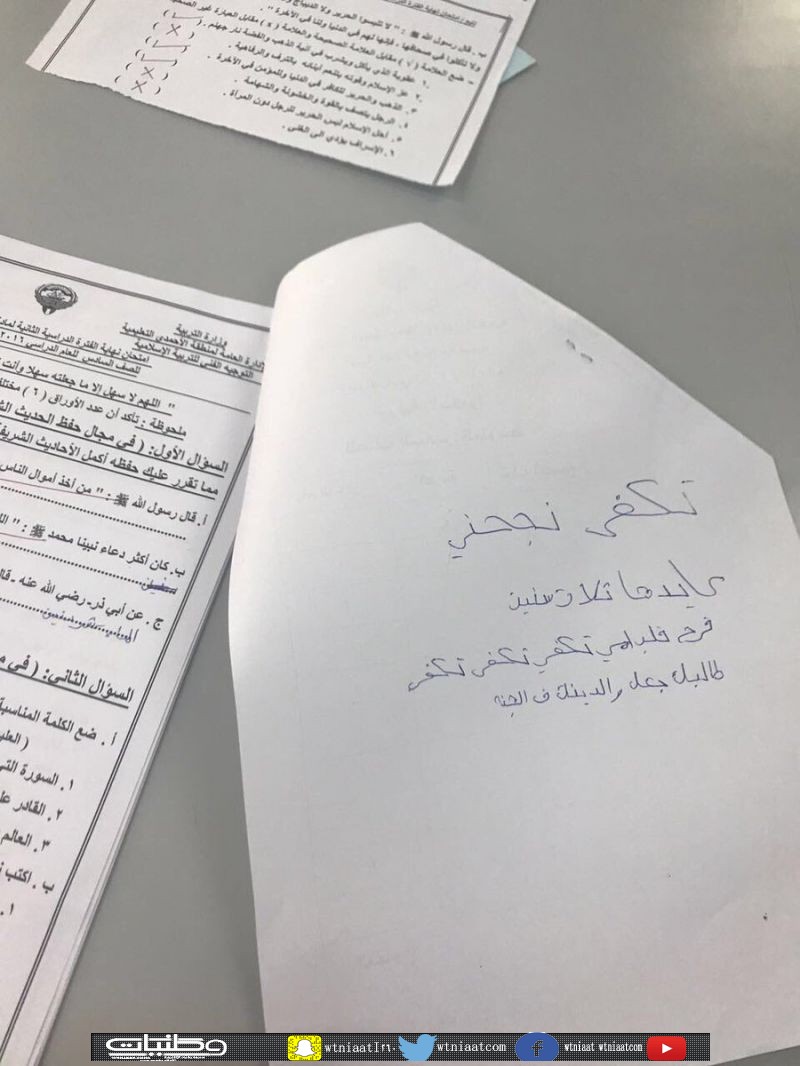 ب . قال رسول الله ﷺ : " لا تلبسوا الحرير ولا الديباج
ولا تأكلوا في صحافها ، فإنها لهم في الدنيا ولنا في الآخرة " .
- ضع العلامة ( √ ) مقابل العلامة الصحيحة والعلامة ( x ) مقابل العبارة غير
١. عقوبة الذي يأكل ويشرب في آنية الذهب والفضة نار جهنم . ( ✓ )
٢. عز الإسلام وقوته بتنعم أبنائه بالترف والرفاهية . ( x )
٣. الذهب والحرير للكافر في الدنيا وللمؤمن في الآخرة . ( ✓ )
٤. الرجل يتصف بالقوة والخشونة والشهامة . ( ✓ )
٥. أحل الإسلام لبس الحرير للرجل دون المرأة . ( x )
٦. الإسراف يؤدي الى الغنى . ( x )
وزارة التربية
الادارة العامة لمنطقة الأحمدي التعليمية
التوجيه الفني للتربية الإسلامية
إمتحان نهاية الفترة الدراسية الثانية
للصف السادس للعام الدراسي ٢٠١٦
" اللهم لا سهل إلا ما جعلته سهلا وأنت
ملحوظة : تأكد أن عدد الأوراق ( ٦ )
السؤال الأول: ( في مجال حفظ الحديث
مما تقرر عليك حفظه أكمل الأحاديث
أ. قال رسول الله ﷺ : " من أخذ أموال الناس
ب. كان أكثر دعاء نبينا محمد ﷺ : "
ج . عن أبي ذر - رضي الله عنه -
السؤال الثاني: ( في
أ . ضع الكلمة المناسبة
١. السورة
٢. القادر
٣. العالم
ب . اكتب
١.
تكفى نجحني
عايدها ثلاث سنين
فرح قلب امي تكفى تكفى تكفى
طالبك جعل والدينك ف الجنه
وطنيات
wtniaat1n
wtniaatcom
wtniaat wtniaatcom